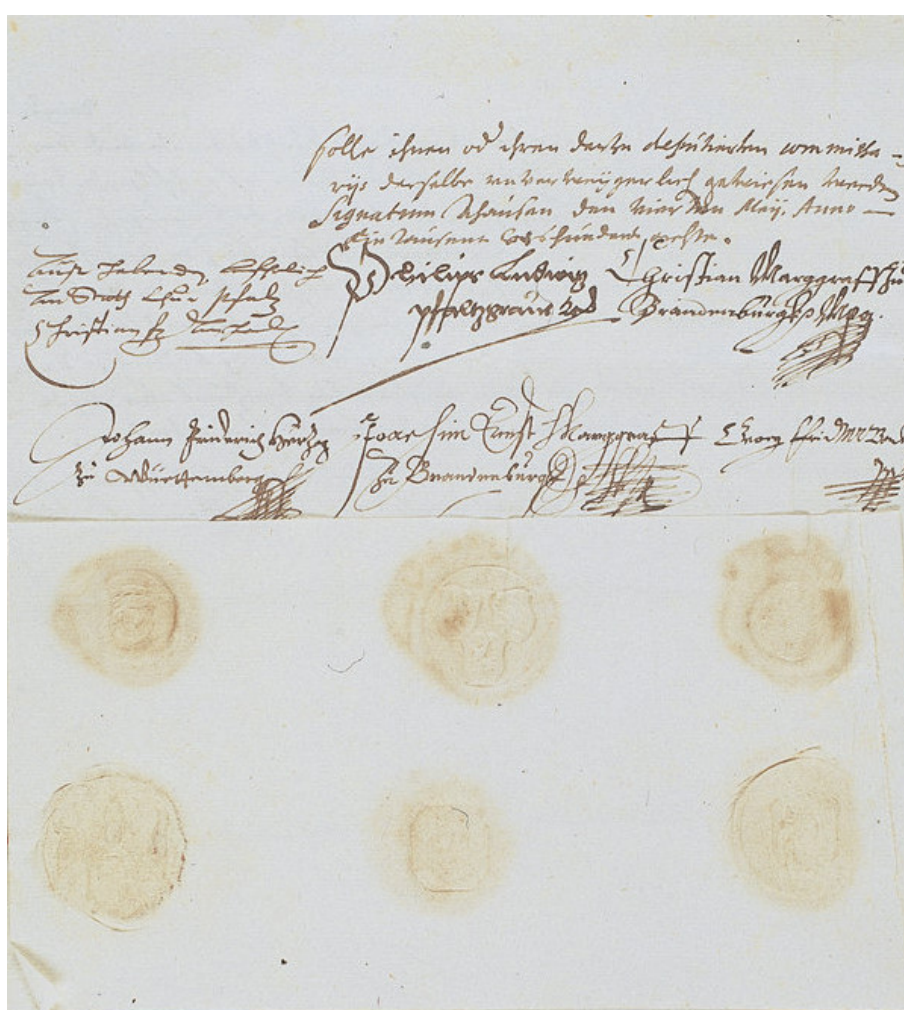 solle ihnen od ihren darzu deputierten commissa-
rijs derselbe unverweygerlich gewiesen werden
Signatum Ahausen den vier Mey. Anno —
Ein tausent sechshundert achte.
habenden befelch
an Statt Chur Pfaltz
Christian fz Anhalt
Philips Ludwig
pfaltzgrave
Christian Marggraff zu
Brandenburgk
Johann Friderich Hertzog
zu Württemberg
Joachim Ernst Marggraf
zu Brandenburg
Georg Fridrich